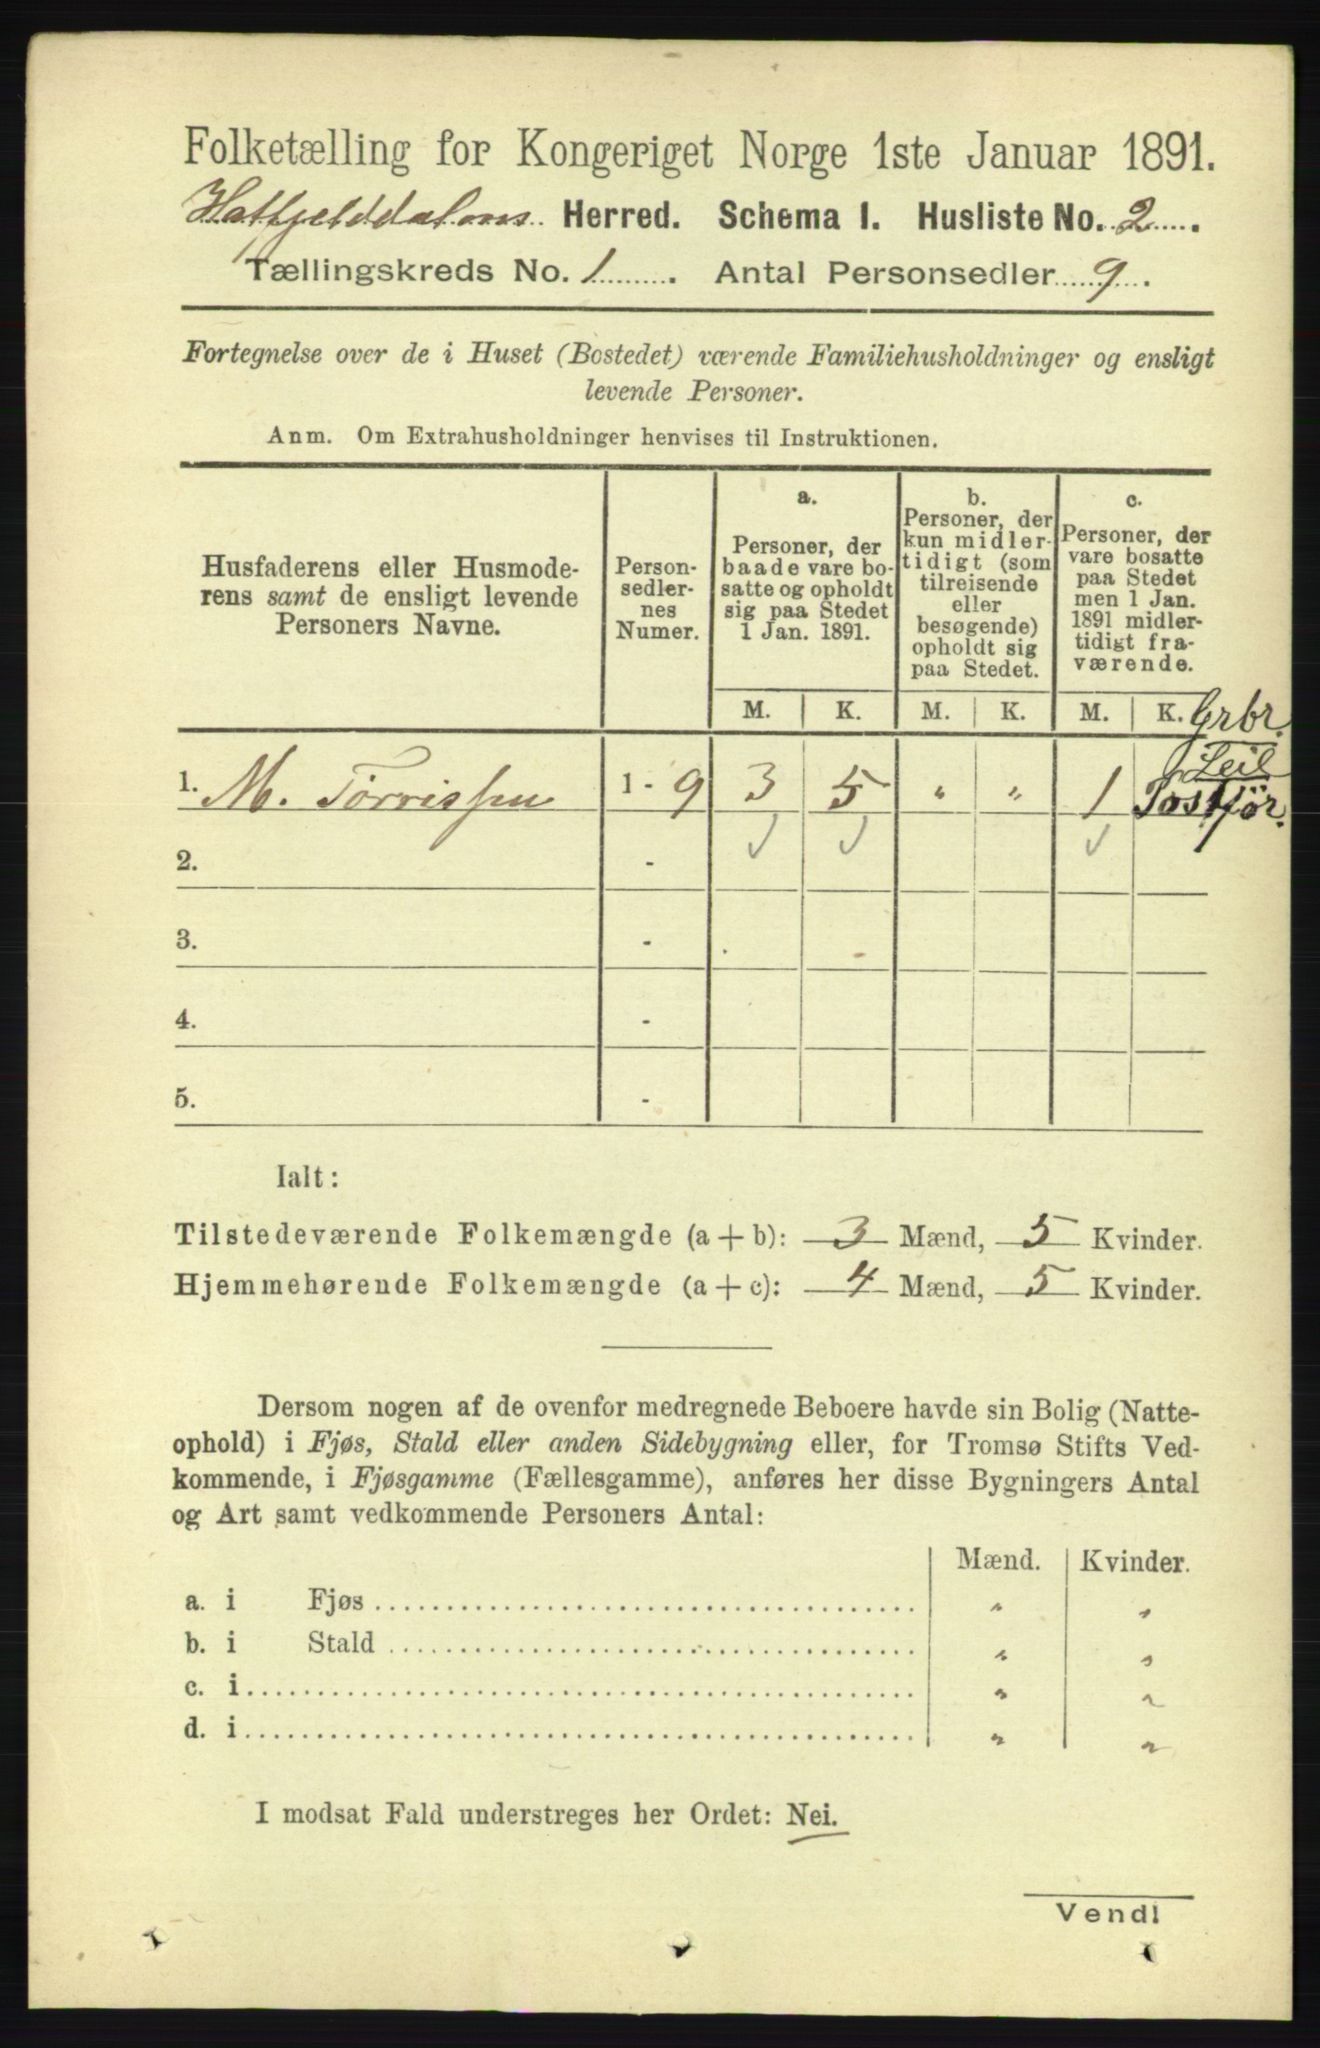 Folketælling for Kongeriget Norge 1ste Januar 1891.
Hatfjelddalens Herred. Schema 1. Husliste No. 2
Tællingskreds No. 1. Antal Personsedler 9.
Fortegnelse over de i Huset (Bostedet) værende Familiehusholdninger og ensligt
levende Personer.
Anm. Om Extrahusholdninger henvises til Instruktionen.
Husfaderens eller Husmode-
rens samt de ensligt levende
Personers Navne.
Person-
sedler-
nes
Numer.
a.
Personer, der
baade vare bo-
satte og opholdt
sig paa Stedet
1 Jan. 1891.
b.
Personer, der
kun midler-
tidigt (som
tilreisende
eller
besøgende)
opholdt sig
paa Stedet.
c.
Personer, der
vare bosatte
paa Stedet
men 1 Jan.
1891 midler-
tidigt fra-
værende.
M. K. M. K. M. K.
Grbr.
Leil
1. M. Tørrissen 1 - 9 3 5 " " 1
2. -
3. -
4. -
5. -
Ialt:
Tilstedeværende Folkemængde (a + b): 3 Mænd, 5 Kvinder.
Hjemmehørende Folkemængde (a + c): 4 Mænd, 5 Kvinder.
Dersom nogen af de ovenfor medregnede Beboere havde sin Bolig (Natte-
ophold) i Fjøs, Stald eller anden Sidebygning eller, for Tromsø Stifts Ved-
kommende, i Fjøsgamme (Fællesgamme), anføres her disse Bygningers Antal
og Art samt vedkommende Personers Antal:
Mænd. Kvinder.
a. i Fjøs " "
b. i Stald " "
c. i " "
d. i " "
I modsat Fald understreges her Ordet: Nei.
Vend!